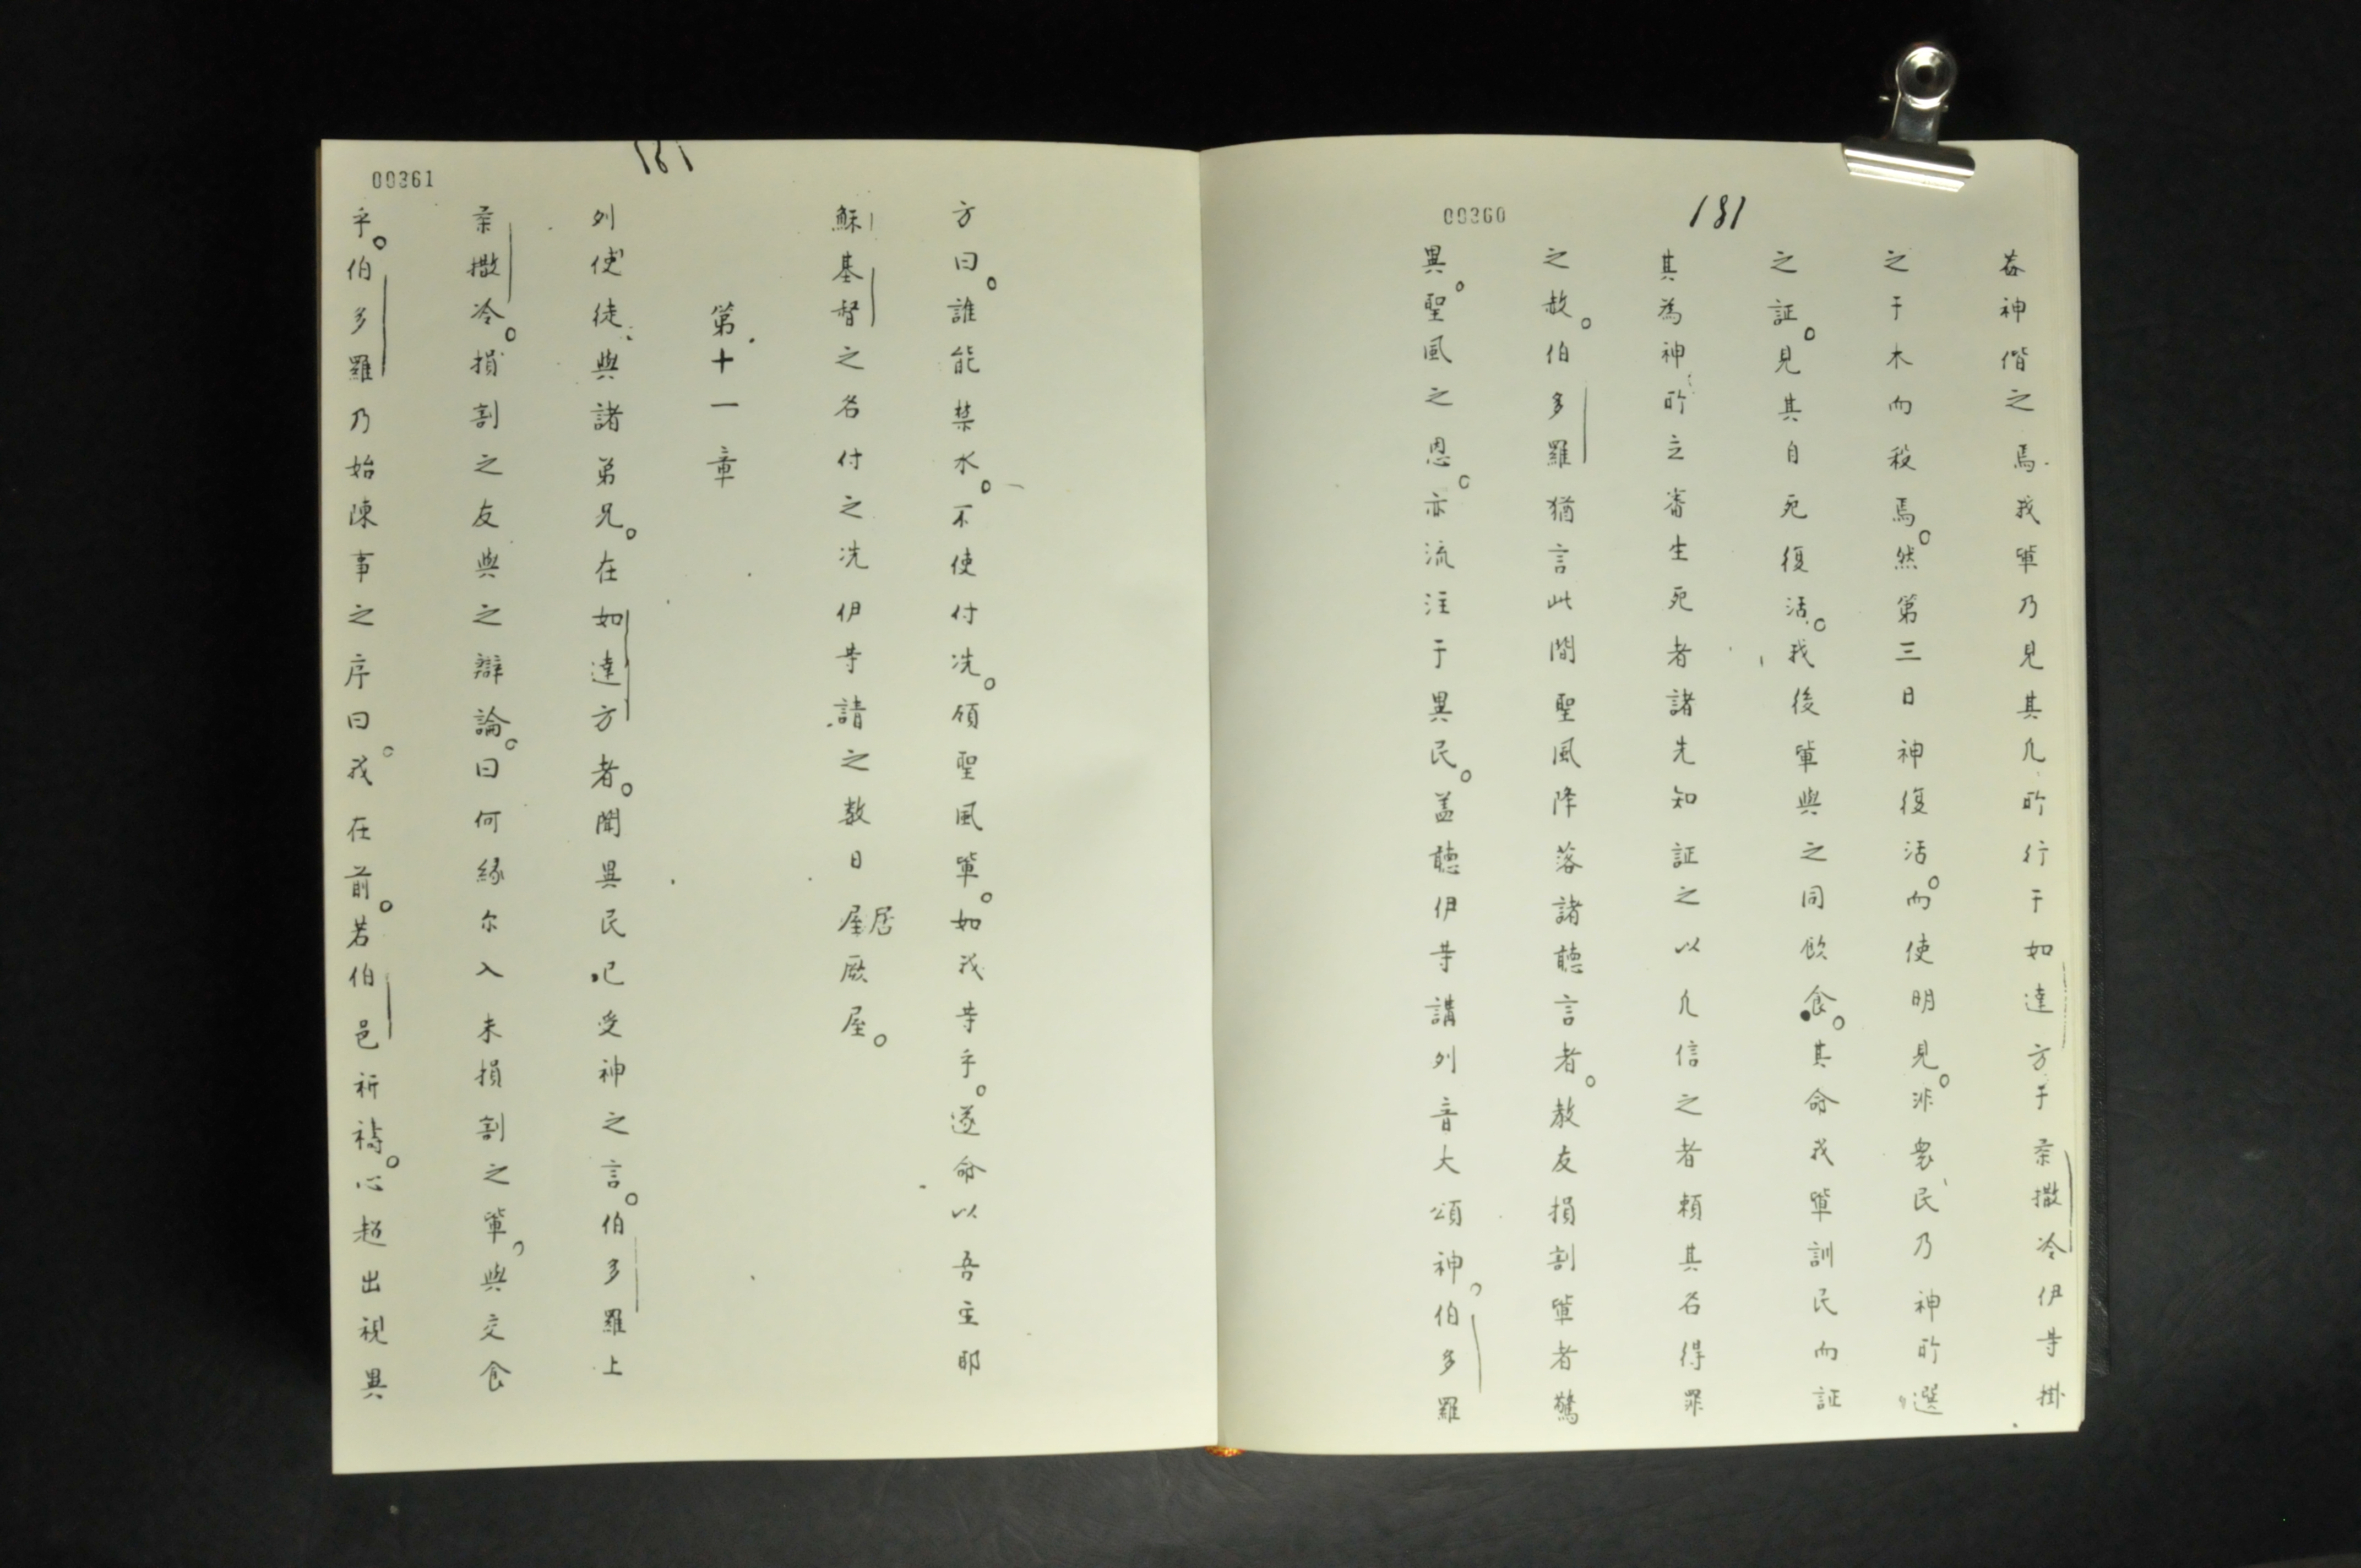 00360
181
葢神偕之焉我軰乃見其凢所行于如達方于柔撒冷伊等掛
之于木而殺焉。然第三日神復活。而使明見。非衆民乃神所選
之証。見其自死復活。我後軰與之同飲食。其命我軰訓民而証
其為神所立審生死者諸先知証之以凢信之者頼其名得罪
之赦。伯多羅猶言此間聖風降落諸聽言者。教友損割軰者驚
異。聖風之恩。亦流注于異民。盖聽伊等講列音大頌神。伯多羅
00361
181
方曰。誰能禁水。不使付洗。領聖風軰。如我等乎。遂命以吾主耶
穌基督之名付之洗伊等請之数日屋居厥屋。
第十一章
列使徒與諸弟兄。在如達方者。聞異民已受神之言。伯多羅上
柔撒冷。損割之友與之辯論。曰何縁尔入未損割之軰。與交食
乎。伯多羅乃始陳事之序曰。我在前。若伯邑祈禱。心超出視異